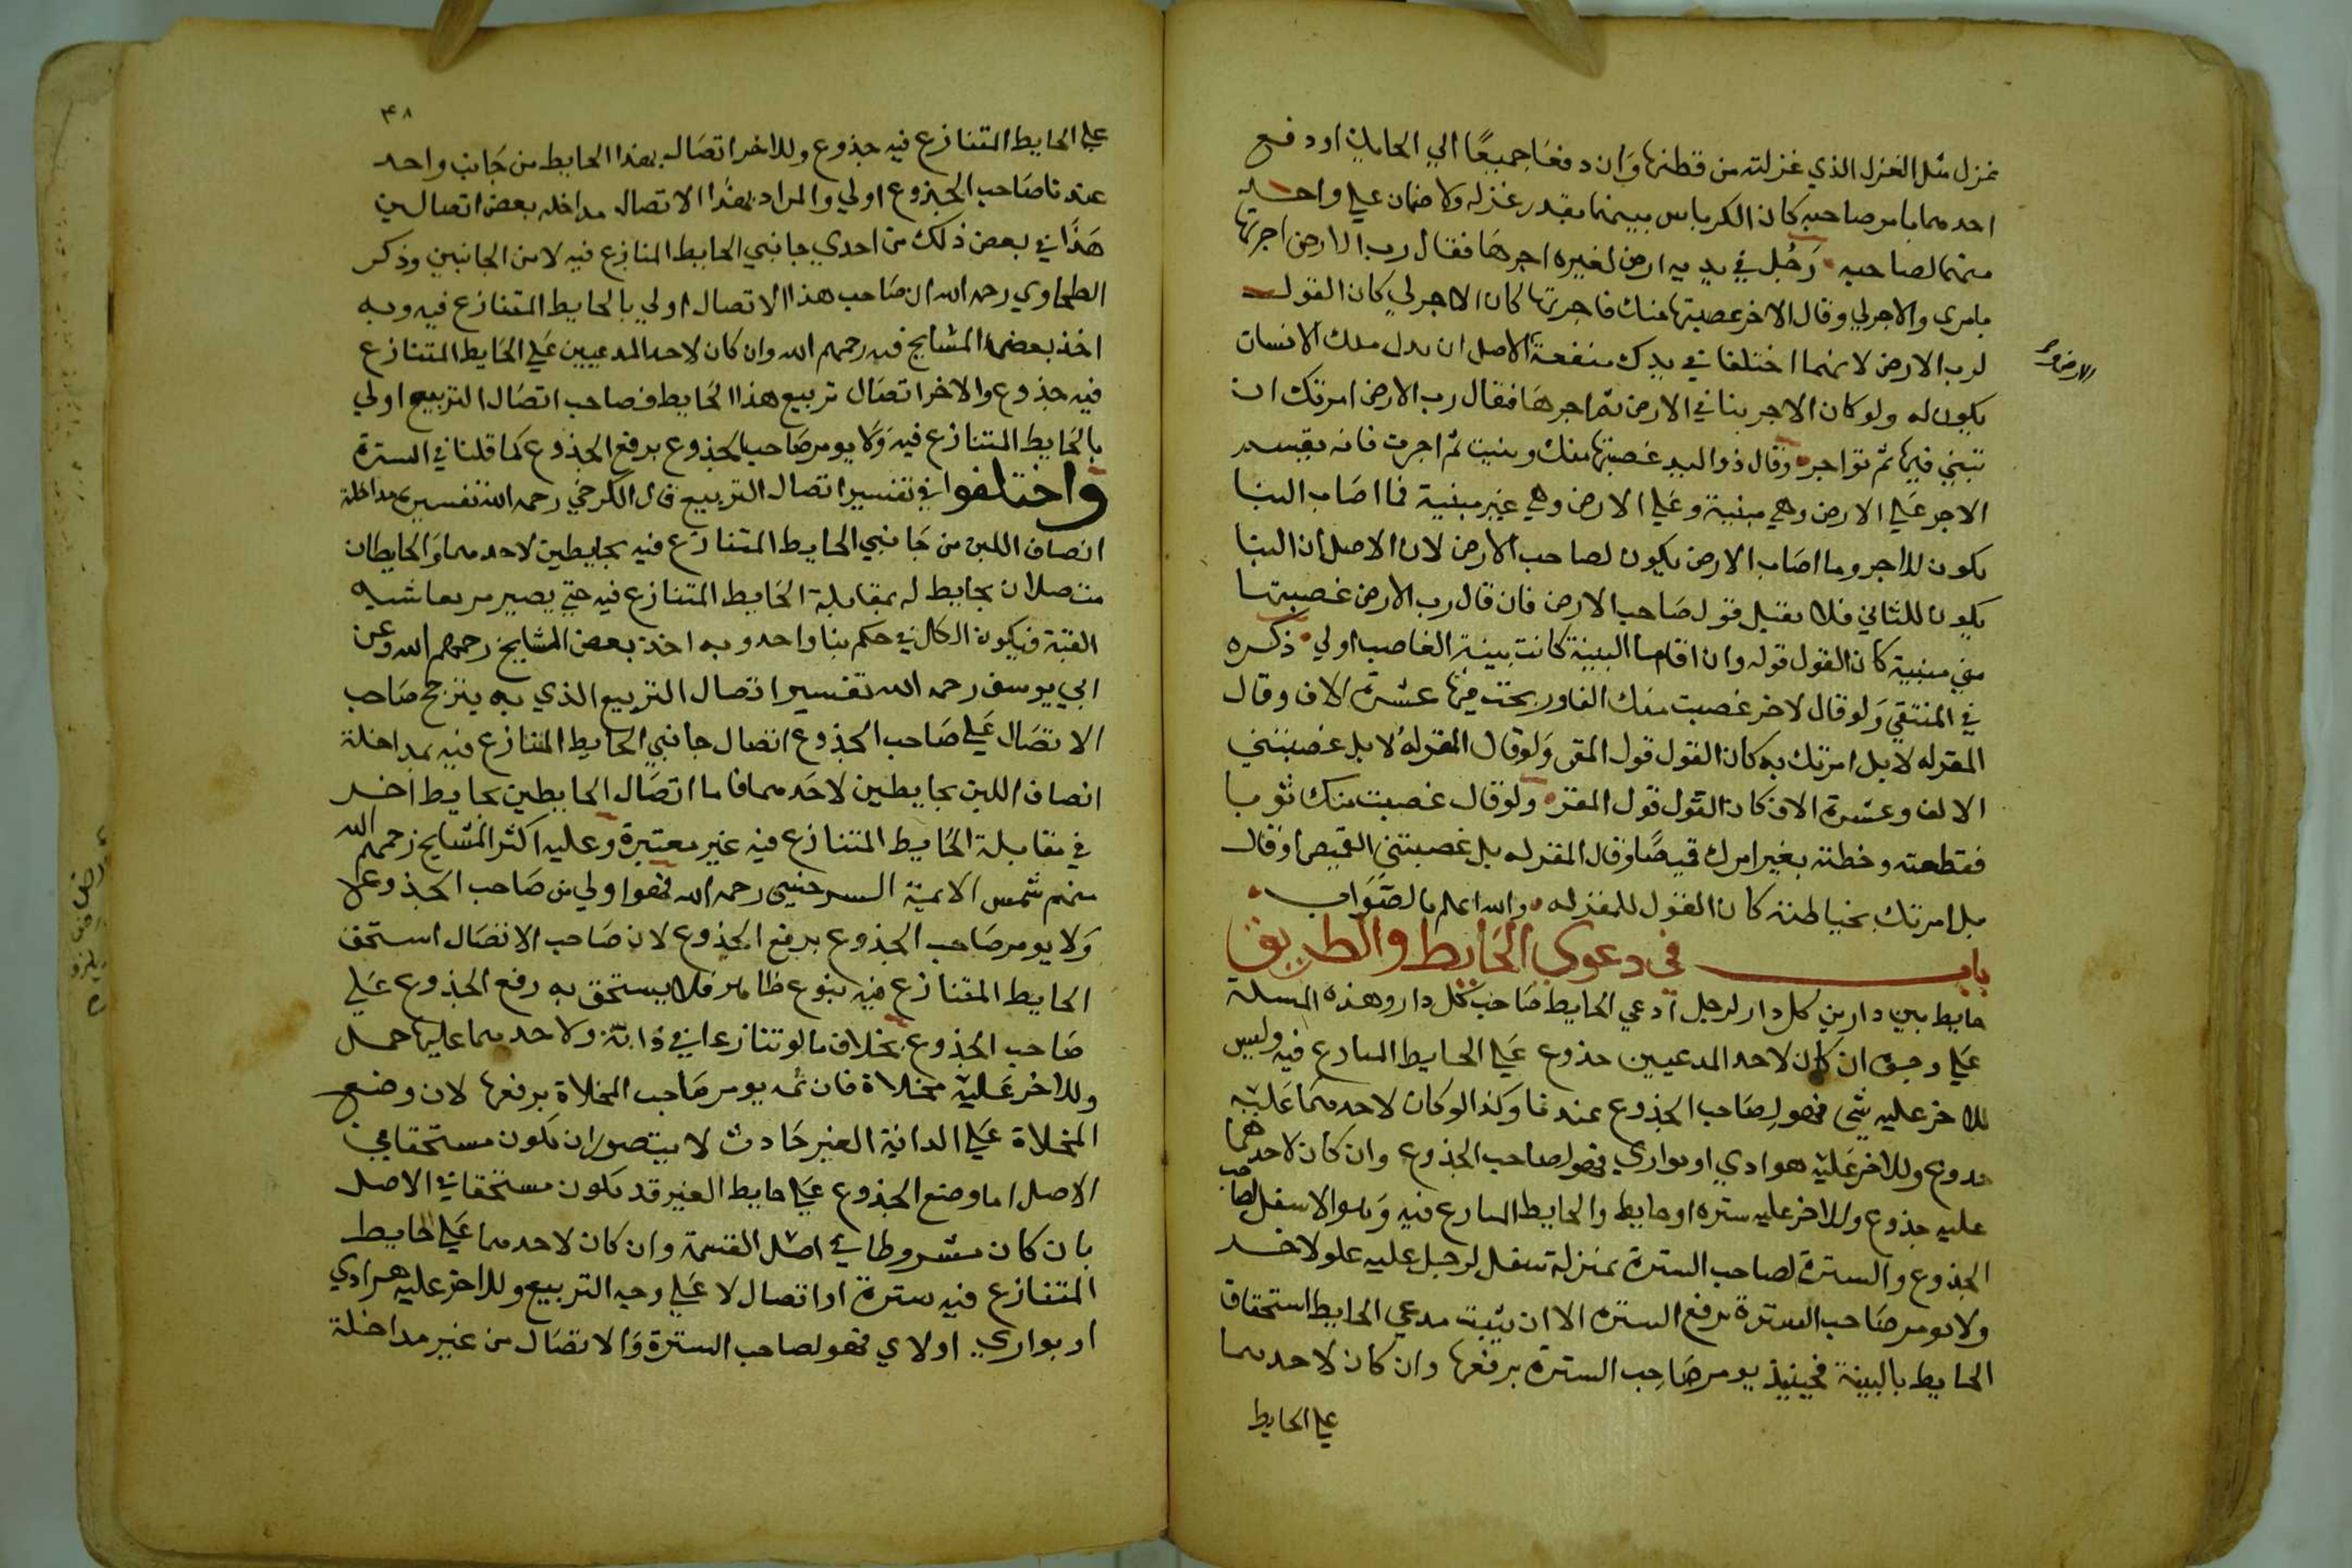 غزل مثل الغزل الذي غزلته من قطنها وان دفعا جميعا الي الحايك او دفع
احدهما بامر صاحبه كان الكرباس بينهما بقدر غزله ولا ضمان علي واحد
منهما لصاحبه رجل في يديه ارض لغيره اجرها فقال رب الارض اجرتها
بامري والاجر لي وقال الاخر غصبتها منك فاجرتها كان الاجر لي كان القول
لرب الارض لانهما اختلفا في بدل منفعة الاصل ان بدل ملك الانسان
يكون له ولو كان الاجر بنا في الارض ثم اجرها فقال رب الارض امرتك ان
تبني فيها ثم تواجر وقال ذو اليد غصبتها منك وبنيت ثم اجرت فانه يقسم
الاجر علي الارض وهي مبنية وعلي الارض وهي غير مبنية فما اصاب البنا
يكون للاجر وما اصاب الارض يكون لصاحب الارض لان الاصل ان البنا
يكون للثاني فلا يقبل قول صاحب الارض فان قال رب الارض غصبتها
مني مبنية كان القول قوله وان اقاما البينة كانت بينة الغاصب اولي ذكره
في المنتقي ولو قال لاخر غصبت منك الفا وربحت فيها عشرة الاف وقال
المقر له لا بل امرتك به كان القول قول المقر ولو قال المقر له لا بل غصبتني
الالف وعشرة الاف كان القول قول المقر ولو قال غصبت منك ثوبا
فقطعته وخطته بغير امرك قميصا وقال المقر له بل غصبتني القميص او قال
بل امرتك بخياطته كان القول للمقر له والله اعلم بالصواب
باب في دعوي الحايط والطريق
حايط بين دارين كل دار لرجل ادعي الحايط صاحب كل دار وهذه المسلة
علي وجوه ان كان لاحد المدعيين جذوع علي الحايط المنازع فيه وليس
للاخر عليه شي فهو لصاحب الجذوع عندنا وكذا لو كان لاحدهما عليه
جذوع وللاخر عليه هوادي او بواري فهو لصاحب الجذوع وان كان لاحدهما
عليه جذوع وللاخر عليه ستره او حايط والحايط المنازع فيه وهو الاسفل لصاحب
الجذوع والسترة لصاحب السترة بمنزلة سفل لرجل عليه علو لاخر
ولا يومر صاحب السترة برفع السترة الا ان يثبت مدعي الحايط استحقاق
الحايط بالبينة فحينيذ يومر صاحب السترة برفعها وان كان لاحدهما
علي الحايط
٣٨
علي الحايط المتنازع فيه جذوع وللاخر اتصال بهذا الحايط من جانب واحد
عندنا صاحب الجذوع اولي والمراد بهذا الاتصال مداخله بعض اتصال لبن
هذا في بعض ذلك من احدي جانبي الحايط المنازع فيه لا من الجانبين وذكر
الطحاوي رحمه الله ان صاحب هذا الاتصال اولي بالحايط المتنازع فيه وبه
اخذ بعض المشايخ رحمهم الله وان كان لاحد المدعيين علي الحايط المتنازع
فيه جذوع والاخر اتصال تربيع هذا الحايط فصاحب اتصال التربيع اولي
بالحايط المتنازع فيه ولا يومر صاحب الجذوع برفع الجذوع كما قلنا في السترة
واختلفوا في تفسير اتصال التربيع قال الكرخي رحمه الله تفسيره مداخلة
انصاف اللبن من جانبي الحايط المتنازع فيه بحايطين لاحدهما والحايطان
متصلان بحايط له بمقابلة الحايط المتنازع فيه حتي يصير مربعا شبه
القبة فيكون الكل في حكم بنا واحد وبه اخذ بعض المشايخ رحمهم الله وعن
ابي يوسف رحمه الله تفسير اتصال التربيع الذي به يترجح صاحب
الاتصال علي صاحب الجذوع اتصال جانبي الحايط المتنازع فيه بمداخلة
انصاف اللبن بحايطين لاحدهما فاما اتصال الحايطين بحايط اخر
في مقابلة الحايط المتنازع فيه غير معتبرة وعليه اكثر المشايخ رحمهم الله
منهم شمس الايمة السرخسي رحمه الله فهو اولي من صاحب الجذوع
ولا يومر صاحب الجذوع برفع الجذوع لان صاحب الاتصال استحق
الحايط المتنازع فيه بنوع ظاهر فلا يستحق به رفع الجذوع علي
صاحب الجذوع بخلاف ما لو تنازعا في دابة ولاحدهما عليها حمل
وللاخر عليه مخلاة فان ثمه يومر صاحب المخلاة برفعها لان وضع
المخلاة علي الدابة الغير حادث لا يتصور ان يكون مستحقا في
الاصل اما وضع الجذوع علي حايط الغير قد يكون مستحقا في الاصل
بان كان مشروطا في اصل القسمة وان كان لاحدهما علي الحايط
المتنازع فيه سترة او اتصال لا علي وجه التربيع وللاخر عليه هرادي
او بواري اولاي فهو لصاحب السترة والاتصال من غير مداخلة